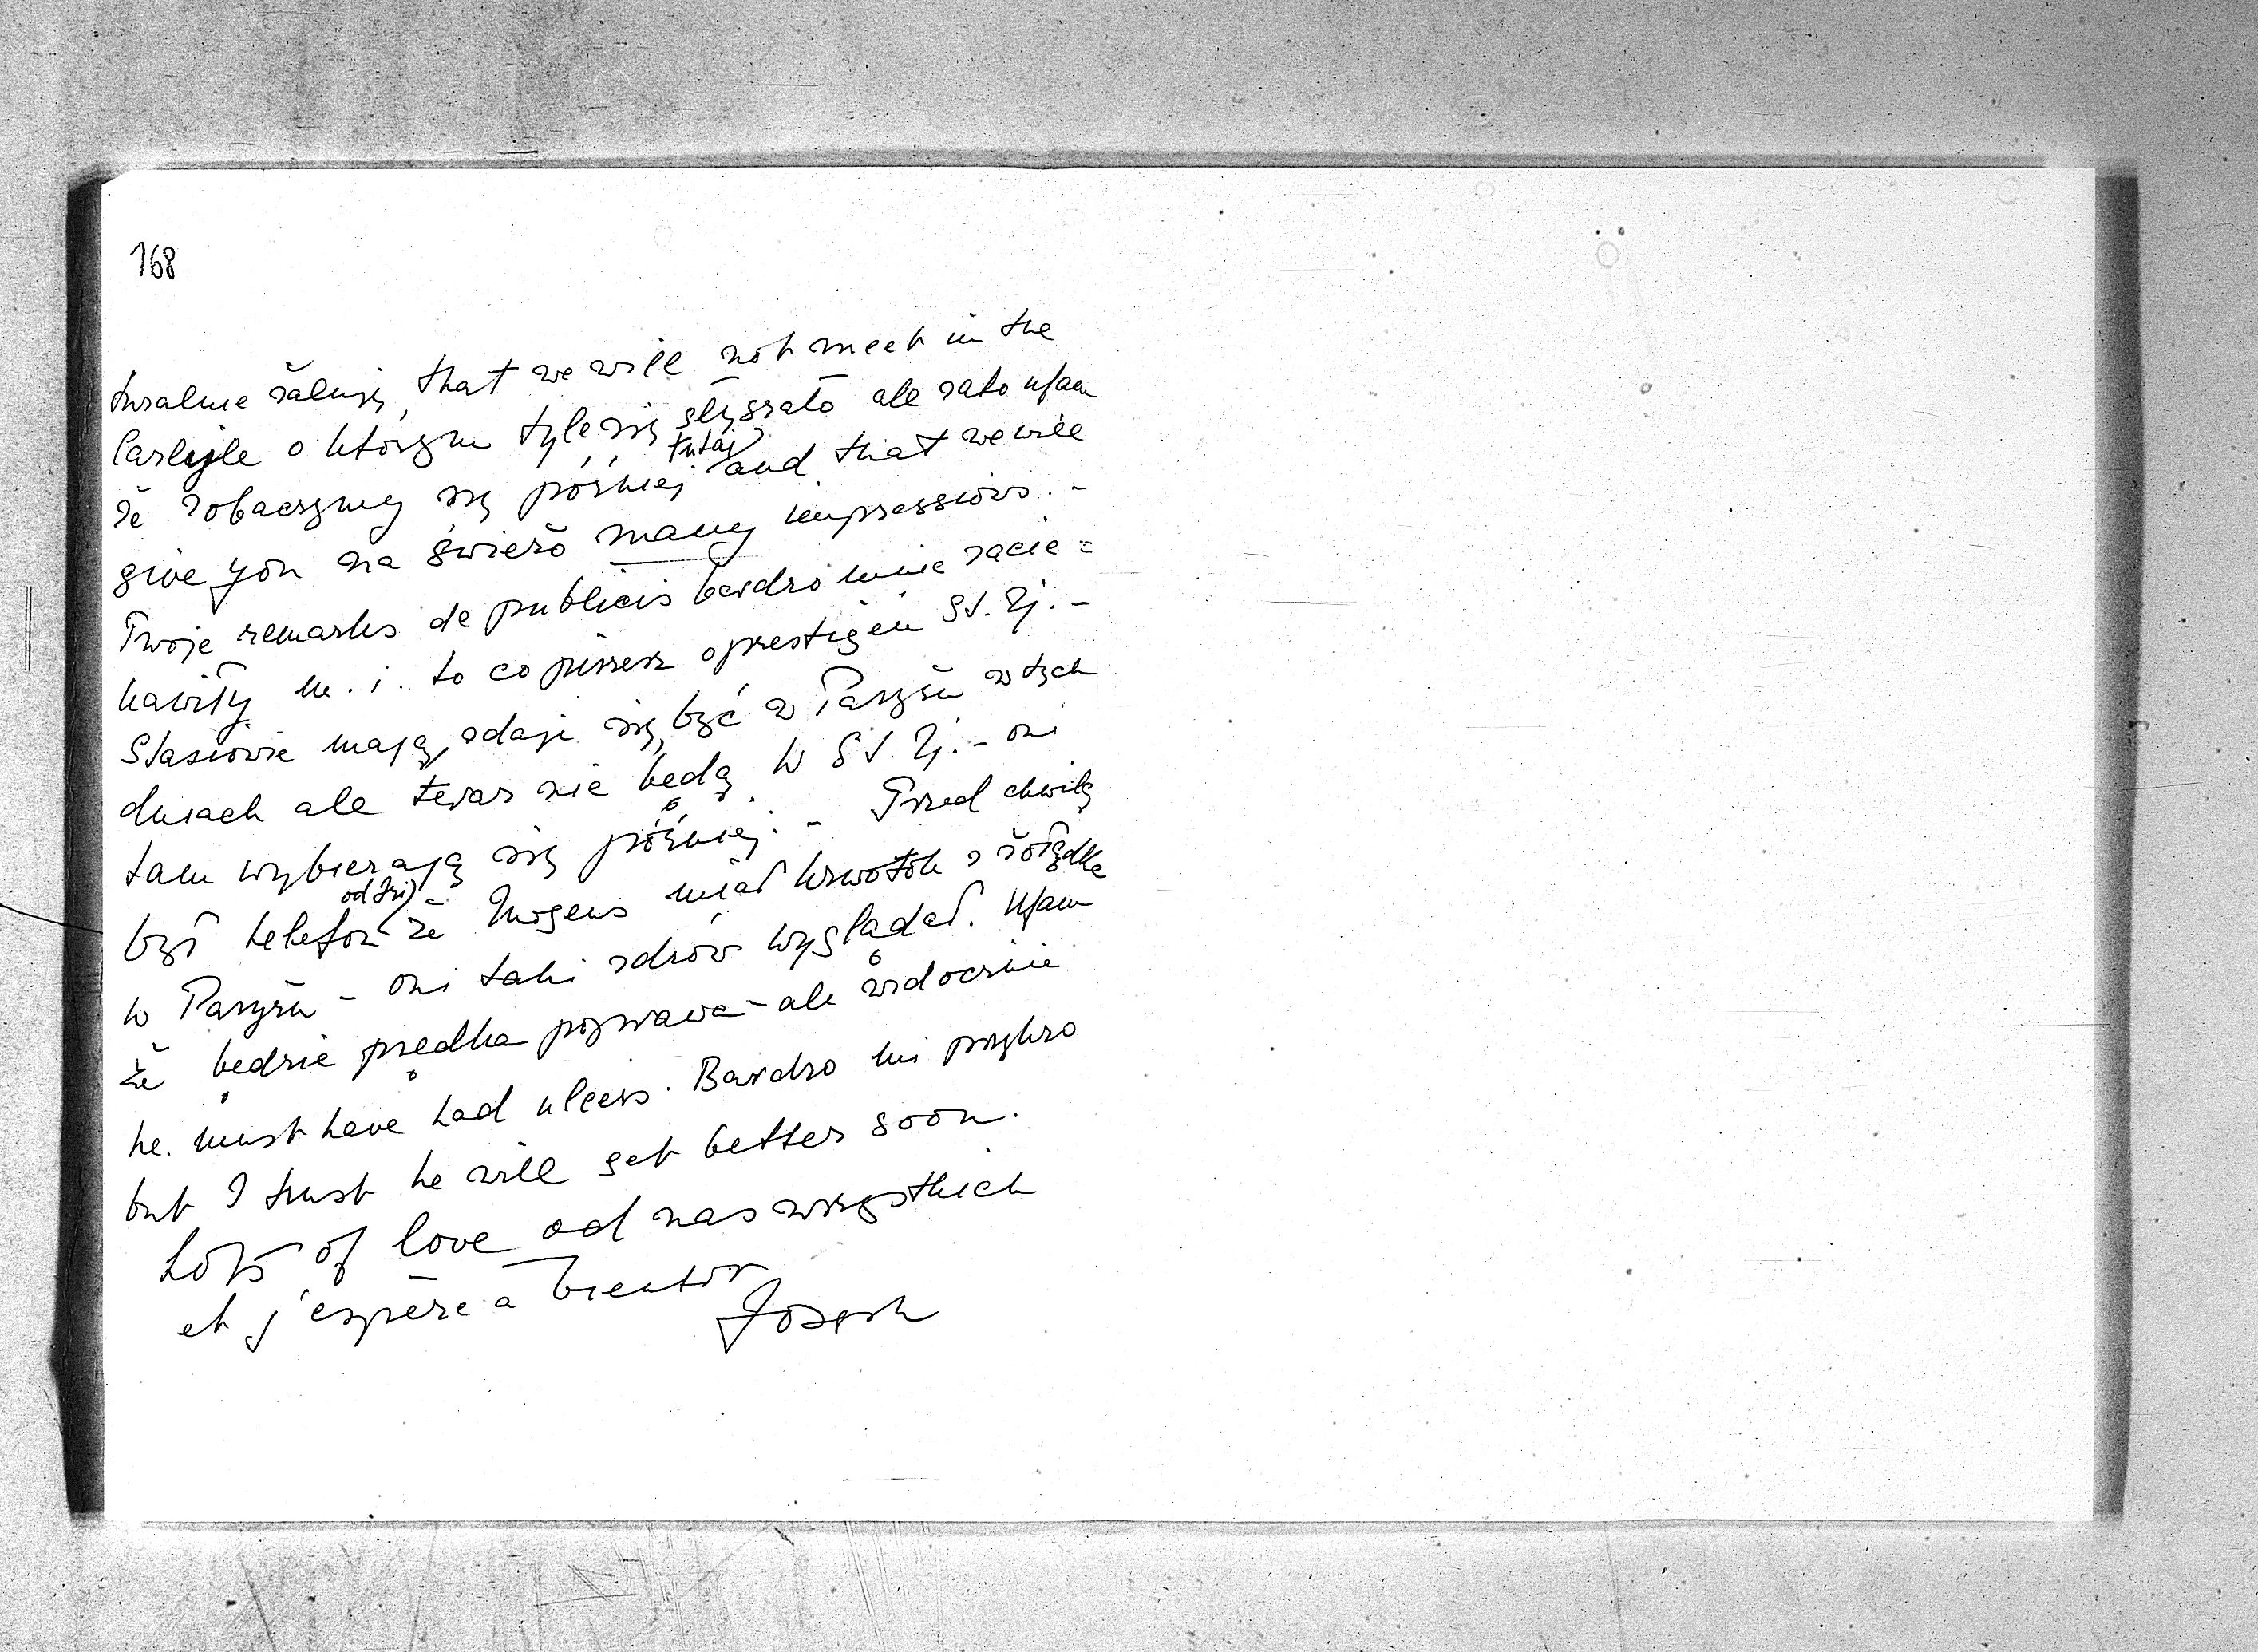 168
turalnie żałuję, that we will not meet in the
Carlyle o którym tyle się słyszało ale zato ufam
że zobaczymy się później tutaj and that we will
give you na świeżo many impressions. -
Twoje remarks de publicis bardzo mnie zacie=
kawiły m. i. to co piszesz o prestigeu St. Zj. -
Stasiowie mają, zdaje się, być w Paryżu w tych
dniach ale teraz nie będą w St. Zj. - oni
tam wybierają się później. - Przed chwilą
był telefon że Mogens miał krwotok z żołądka
w Paryżu - on taki zdrów wyglądał. Ufam
że będzie prędka poprawa - ale widocznie
he must have had ulcers. Bardzo mi przykro
but I trust he will get better soon.
Lots of love od nas wszystkich
et j'espère à bientôt
Joseph